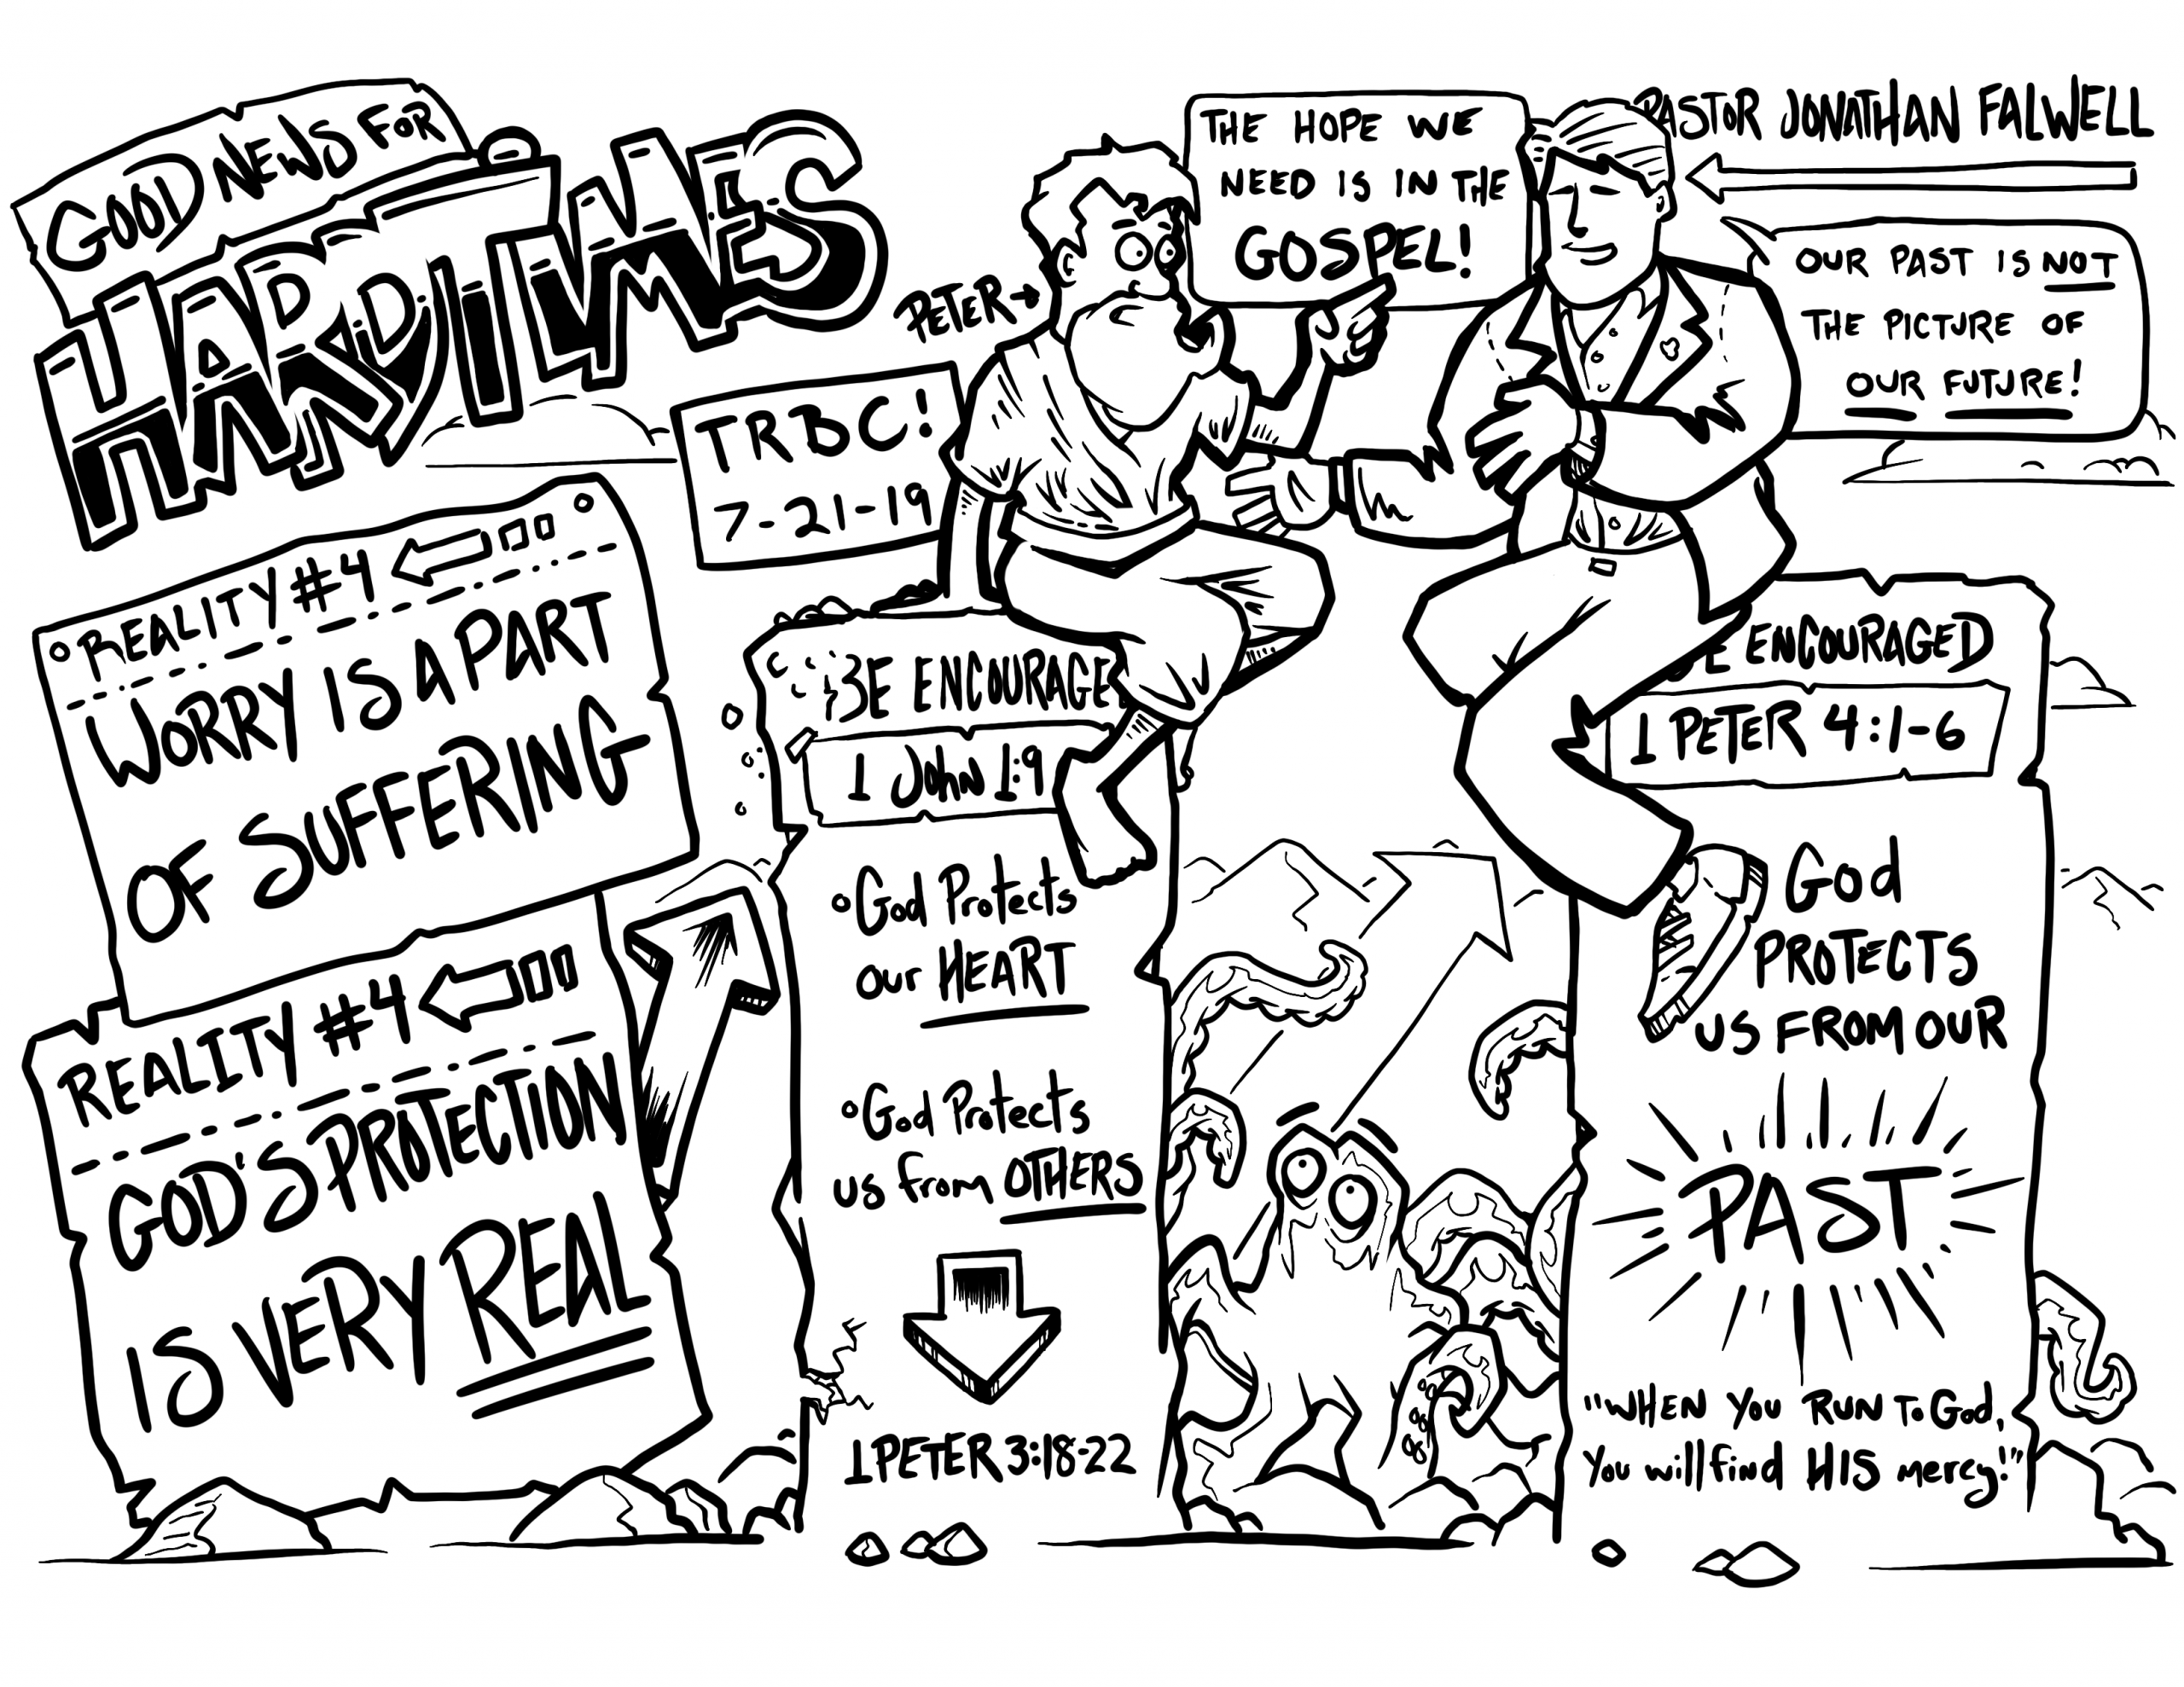 GOOD NEWS FOR
HARD TIMES
TRBC!
7-21-19
PETER
THE HOPE WE
NEED IS IN THE
GOSPEL!
PASTOR JONATHAN FALWELL
OUR PAST IS NOT
THE PICTURE OF
OUR FUTURE!
REALITY #4
WORRY IS A PART
OF SUFFERING
REALITY #4
GOD'S PROTECTION
IS VERY REAL
BE ENCOURAGE
1 John 1:9
God Protects
our HEART
God Protects
us from OTHERS
1 PETER 3:18-22
E ENCOURAGED
1 PETER 4:1-6
God
PROTECTS
US FROM OUR
PAST
"WHEN YOU RUN To God,
You will find HIS mercy!"